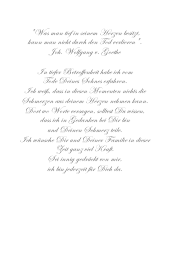 "Was man tief in seinem Herzen besitzt,
kann man nicht durch den Tod verlieren".
Joh. Wolfgang v. Goethe
In tiefer Betroffenheit habe ich vom
Tode Deines Sohnes erfahren.
Ich weiß, dass in diesen Momenten nichts die
Schmerzen aus deinem Herzen nehmen kann.
Dort wo Worte versagen, sollst Du wissen,
dass ich in Gedanken bei Dir bin
und Deinen Schmerz teile.
Ich wünsche Dir und Deiner Familie in dieser
Zeit ganz viel Kraft.
Sei innig gedrückt von mir,
ich bin jederzeit für Dich da.